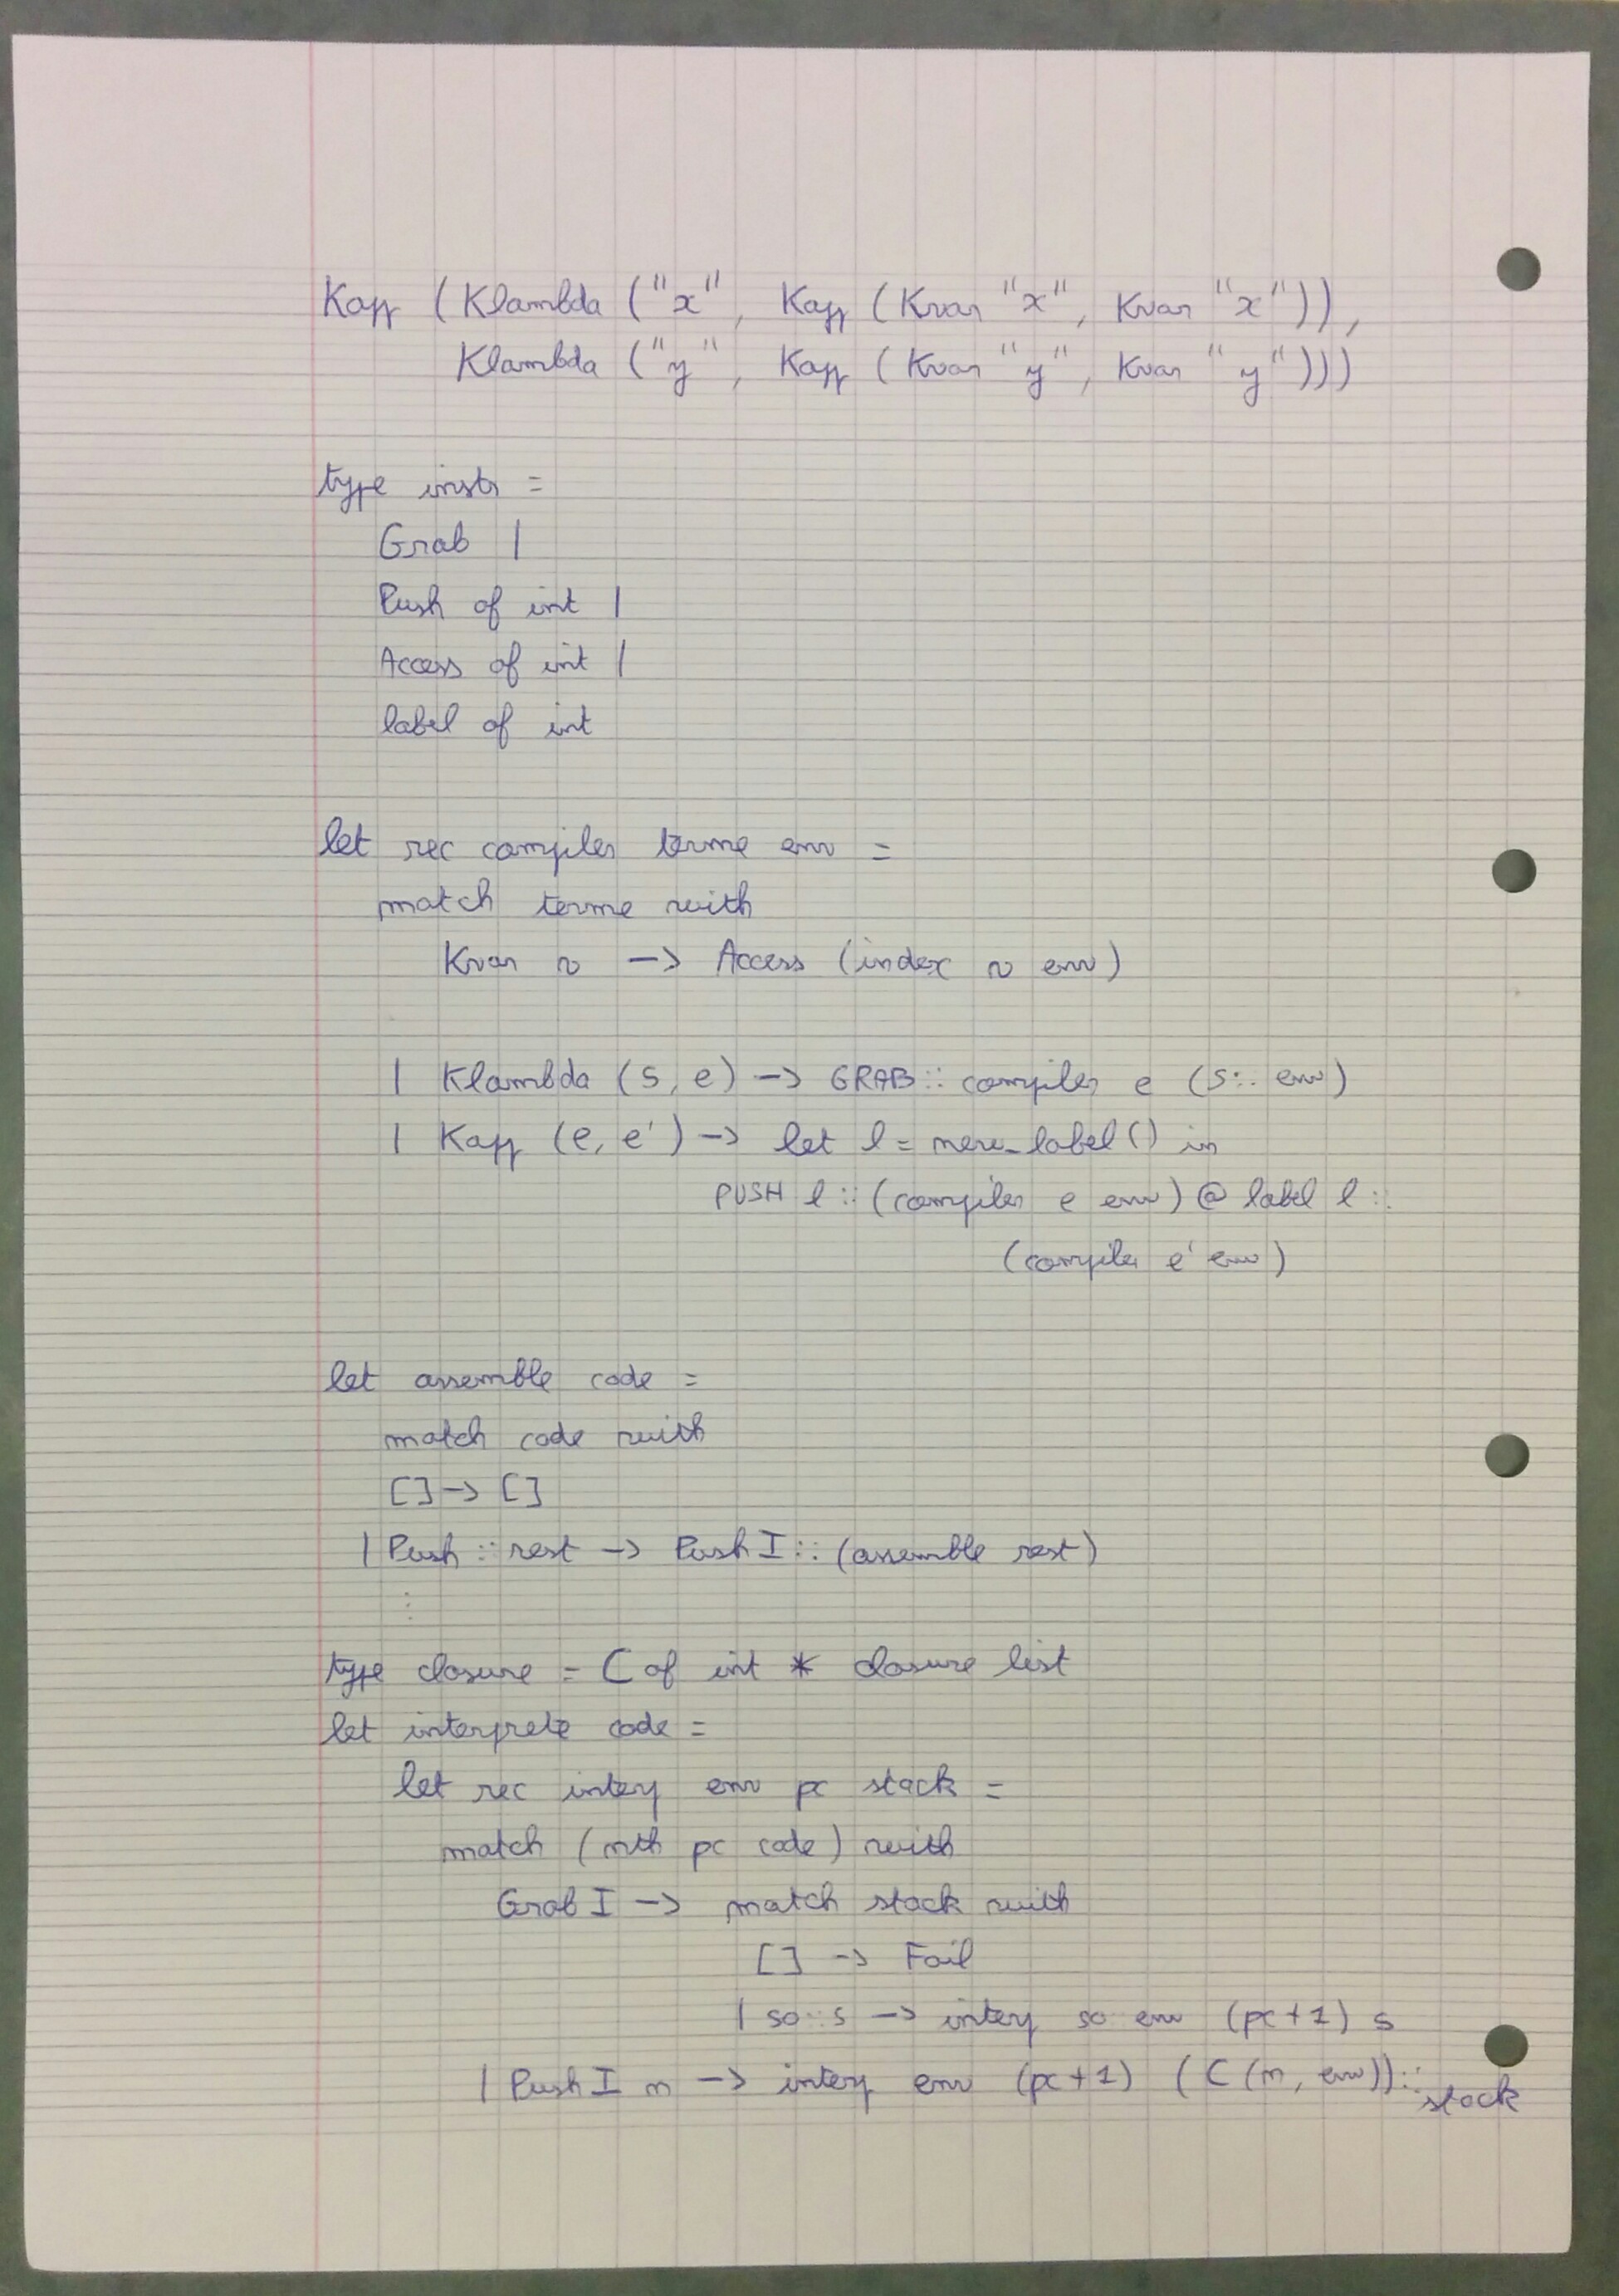 Kapp (Klambda ("x", Kapp (Kvar "x", Kvar "x")),
Klambda ("y", Kapp (Kvar "y", Kvar "y")))
type instr =
Grab |
Push of int |
Access of int |
label of int
let rec compiler terme env =
match terme with
Kvar v -> Access (index v env)
| Klambda (s, e) -> GRAB :: compiler e (s :: env)
| Kapp (e, e') -> let l = new_label () in
PUSH l :: (compiler e env) @ label l ::
(compiler e' env)
let assemble code =
match code with
[] -> []
| Push :: rest -> Push I :: (assemble rest)
⋮
type closure = C of int * closure list
let interprete code =
let rec interp env pc stack =
match (nth pc code) with
Grab I -> match stack with
[] -> Fail
| so :: s -> interp so env (pc+1) s
| Push I n -> interp env (pc+1) (C (n, env)) :: stack